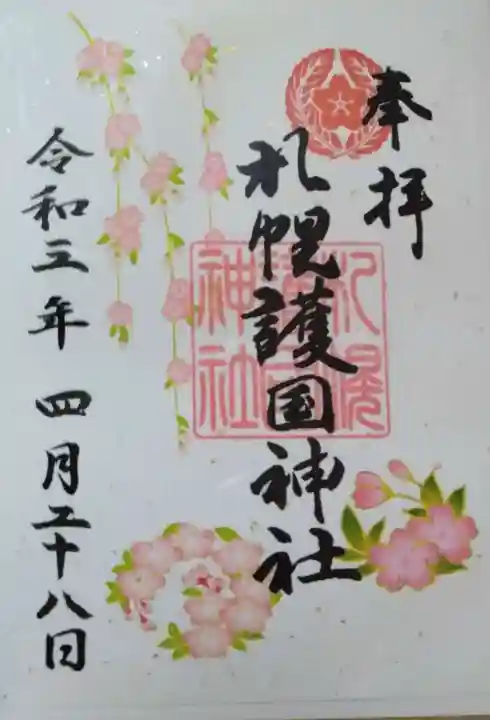 奉拝
札幌護国神社
札幌
神社
令和三年 四月二十八日